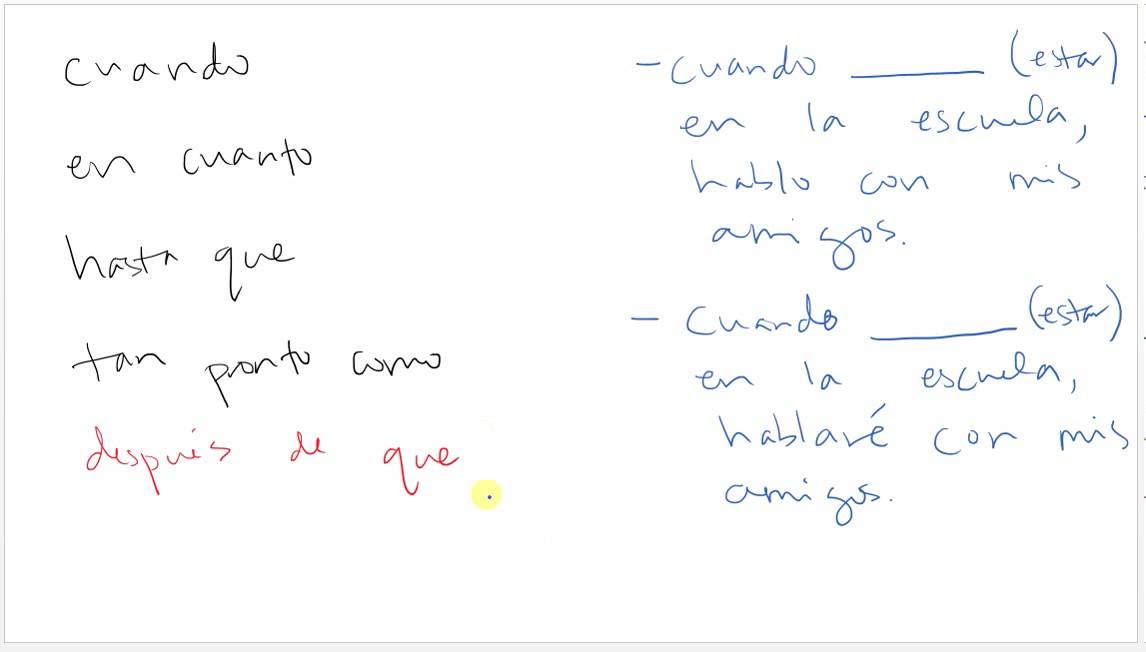 cuando
en cuanto
hasta que
tan pronto como
después de que
- cuando ______ (estar)
en la escuela,
hablo con mis
amigos.
- Cuando ______ (estar)
en la escuela,
hablaré con mis
amigos.